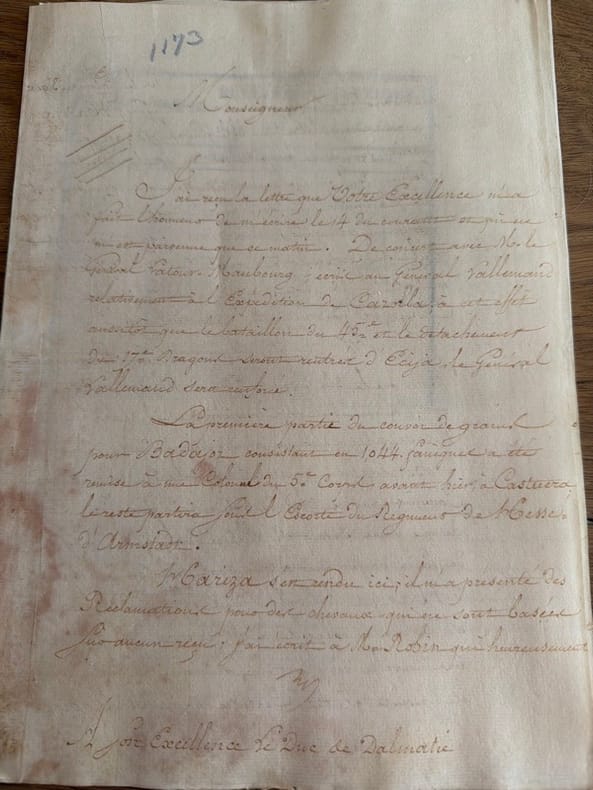 1173
Monseigneur
J'ai reçu la lettre que Votre Excellence m'a
fait l'honneur de m'écrire le 14 du courant et qui ne
m'est parvenue que ce matin. De concert avec M. le
Général Latour-Maubourg, j'écris au Général Lallemand
relativement à l'Expédition de Cazorla, à cet effet
aussitôt que le bataillon du 45.e et le détachement
du 17.e Dragons seront rentrés d'Ecija, le Général
Lallemand sera renforcé.
La première partie du convoi de grains
pour Badajoz consistant en 1044 fanègues a été
remise à un Colonel du 5.e Corps avant hier, à Castuera
le reste partira sous l'Escorte du Régiment de Hesse-
d'Armstadt.
Mariza s'est rendu ici; il m'a présenté des
Réclamations pour des chevaux qui ne sont basées
sur aucun reçu. J'ai écrit à M. Robin qui heureusement
A Son Excellence Le Duc de Dalmatie